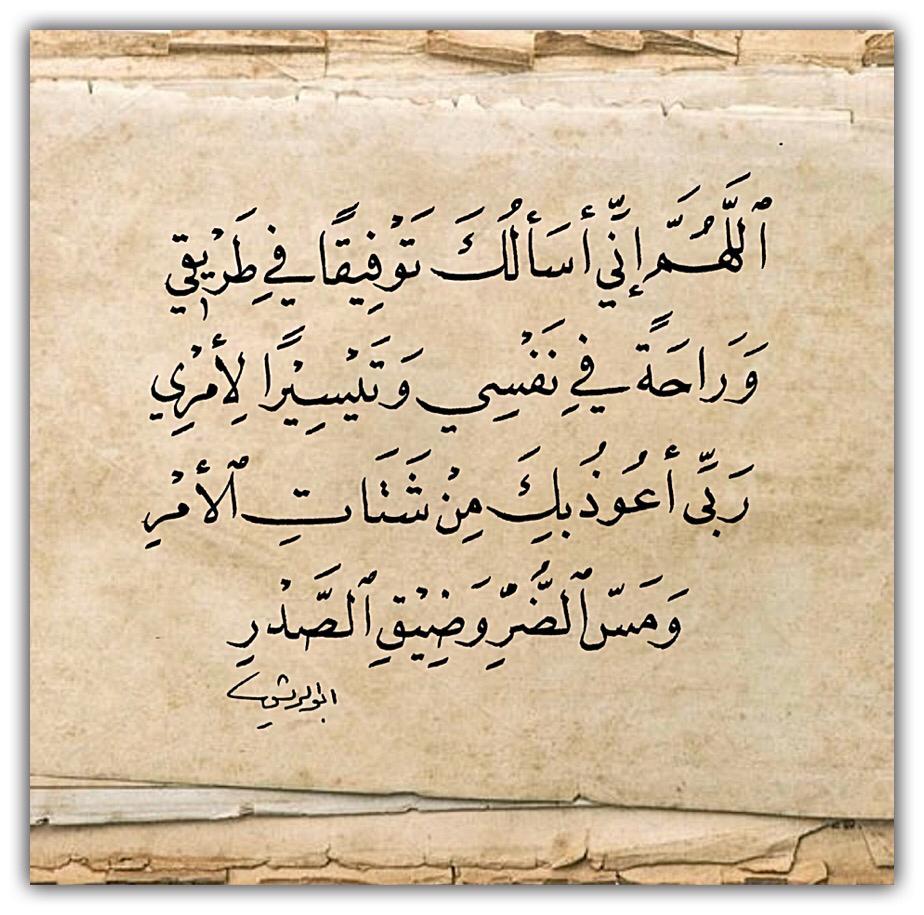 ٱللَّهُمَّ إِنِّي أَسَألُكَ تَوْفِيقًا فِي طَرِيْقِي
وَرَاحَةً فِي نَفْسِي وَتَيْسِيْرًا لِأَمْرِي
رَبِّي أَعُوذُ بِكَ مِنْ شَتَاتِ ٱلْأَمْرِ
وَمَسِّ ٱلضُّرِّ وَضِيْقِ ٱلصَّدْرِ